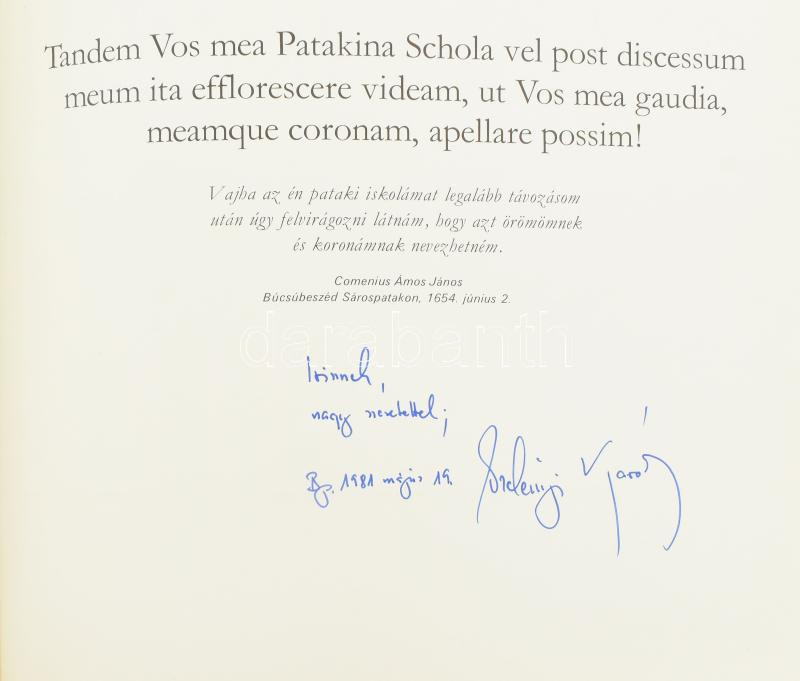 Tandem Vos mea Patakina Schola vel post discessum
meum ita efflorescere videam, ut Vos mea gaudia,
meamque coronam, apellare possim!
Vajha az én pataki iskolámat legalább távozásom
után úgy felvirágozni látnám, hogy azt örömömnek
és koronámnak nevezhetném.
Comenius Ámos János
Búcsúbeszéd Sárospatakon, 1654. június 2.
darabanth
nagy szeretettel;
Bp. 1981 május 19.